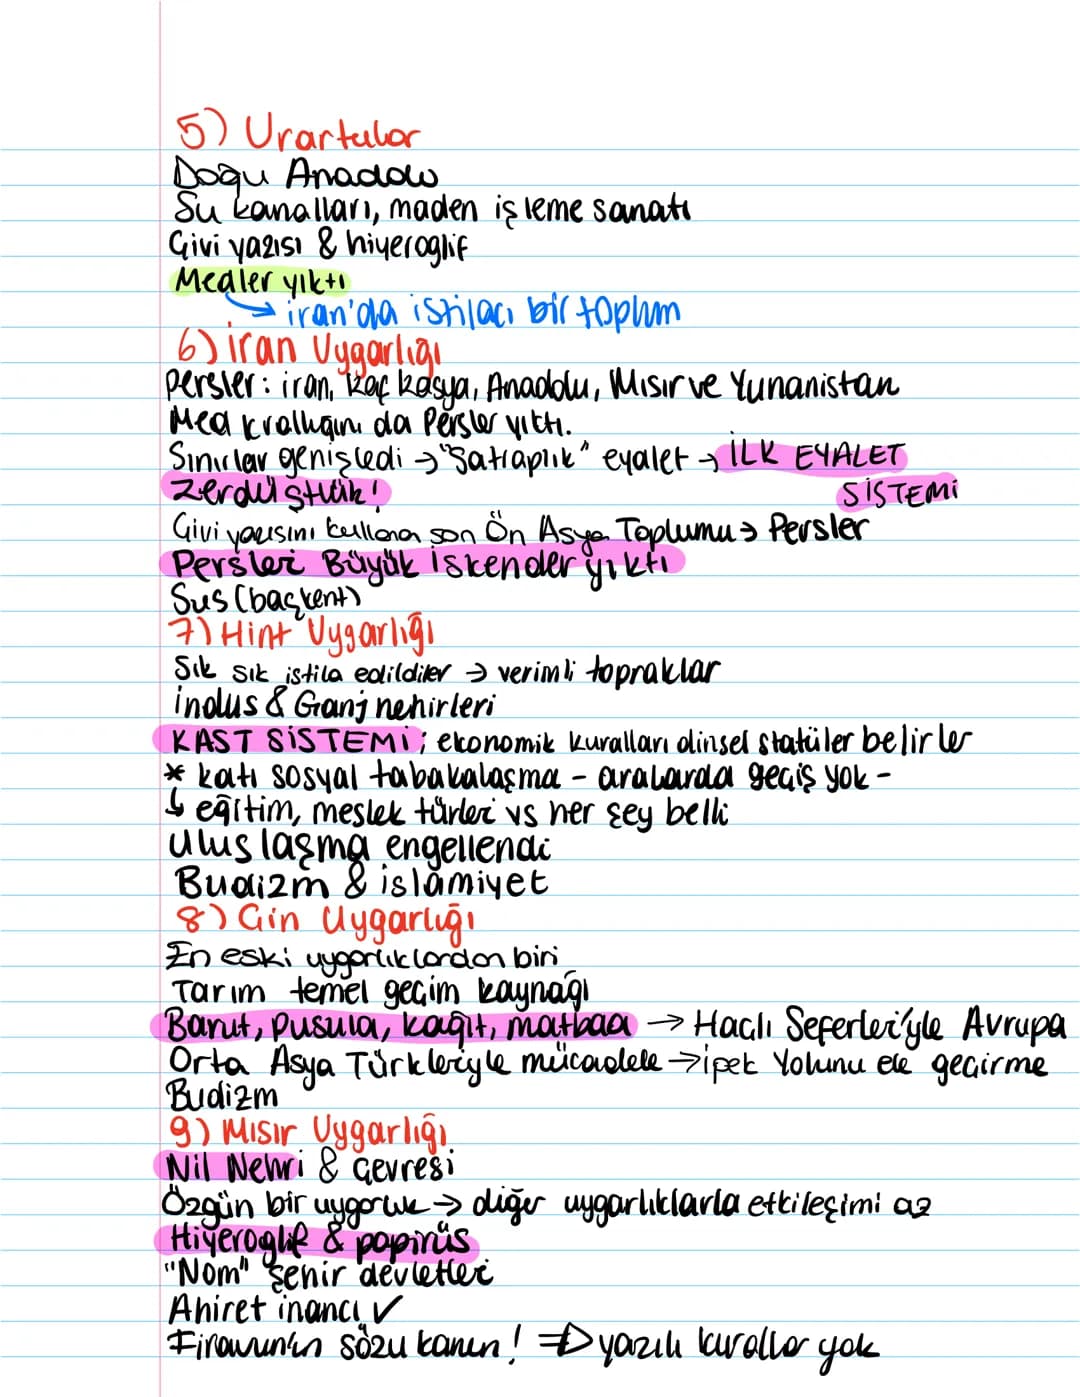 5) Urartular
Doğu Anadolu
Su kanalları, maden işleme sanatı
Çivi yazısı & hiyeroglif
Medler yıktı
→ iran'da istilacı bir toplum
6) iran Uygarlığı
Persler: iran, Kafkasya, Anadolu, Mısır ve Yunanistan
Med krallığını da Persler yıktı.
Sınırlar genişledi → "Satraplık" eyalet → İLK EYALET
Zerdüştlük! SİSTEMİ
Çivi yazısını kullanan son Ön Asya Toplumu → Persler
Persleri Büyük İskender yıktı
Sus (başkent)
7) Hint Uygarlığı
Sık sık istila edildiler → verimli topraklar
indus & Ganj nehirleri
KAST SİSTEMİ; ekonomik kuralları dinsel statüler belirler
* katı sosyal tabakalaşma - aralarda geçiş yok -
↳ eğitim, meslek türleri vs her şey belli
Uluslaşma engellendi
Budizm & islamiyet
8) Çin Uygarlığı
En eski uygarlıklardan biri
Tarım temel geçim kaynağı
Barut, pusula, kağıt, matbaa → Haçlı Seferleri'yle Avrupa
Orta Asya Türkleriyle mücadele → ipek Yolunu ele geçirme
Budizm
9) Mısır Uygarlığı
Nil Nehri & çevresi
Özgün bir uygarlık → diğer uygarlıklarla etkileşimi az
Hiyeroglif & papirüs
"Nom" şehir devletleri
Ahiret inancı ✓
Firavunun sözü kanun! ⇒ yazılı kurallar yok